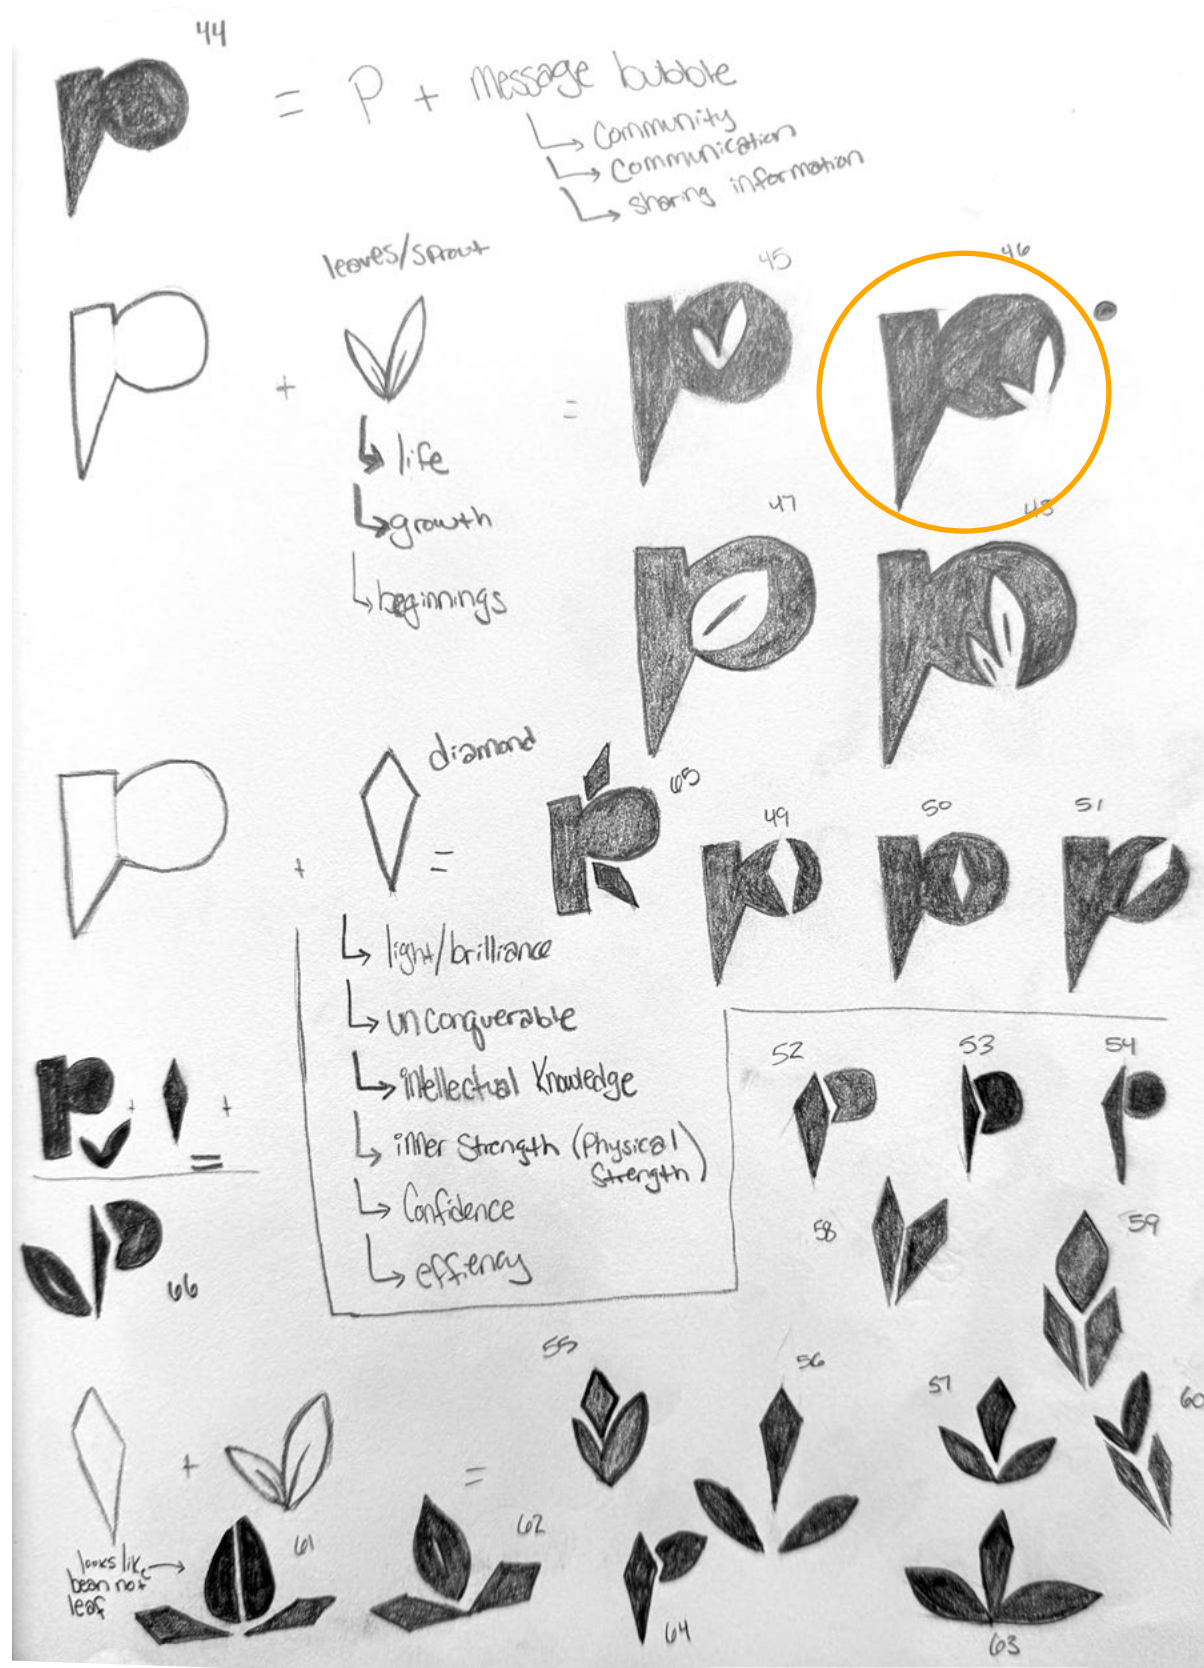 44
= P + Message bubble
↳ Community
↳ Communication
↳ sharing information
leaves/sprout
45
46
+
=
↳ life
↳ growth
↳ beginnings
47
48
diamond
65
+
=
49
50
51
↳ light/brilliance
↳ unconquerable
↳ intellectual Knowledge
↳ inner Strength (Physical Strength)
↳ Confidence
↳ effiency
52
53
54
+ +
=
66
58
59
55
56
57
60
+
=
looks like
bean not
leaf
61
62
64
63